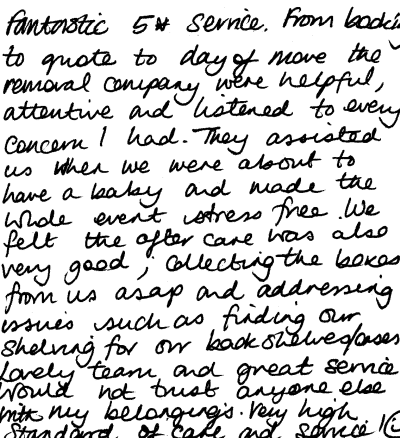 Fantastic 5* service. From bookin
to quote to day of move the
removal company were helpful,
attentive and listened to every
concern I had. They assisted
us when we were about to
have a baby and made the
whole event stress free. We
felt the after care was also
very good, collecting the boxes
from us asap and addressing
issues such as finding our
shelving for our book
Lovely team and great service
Would not trust anyone else
with my belongings. Very high
standard of care and service! ☺